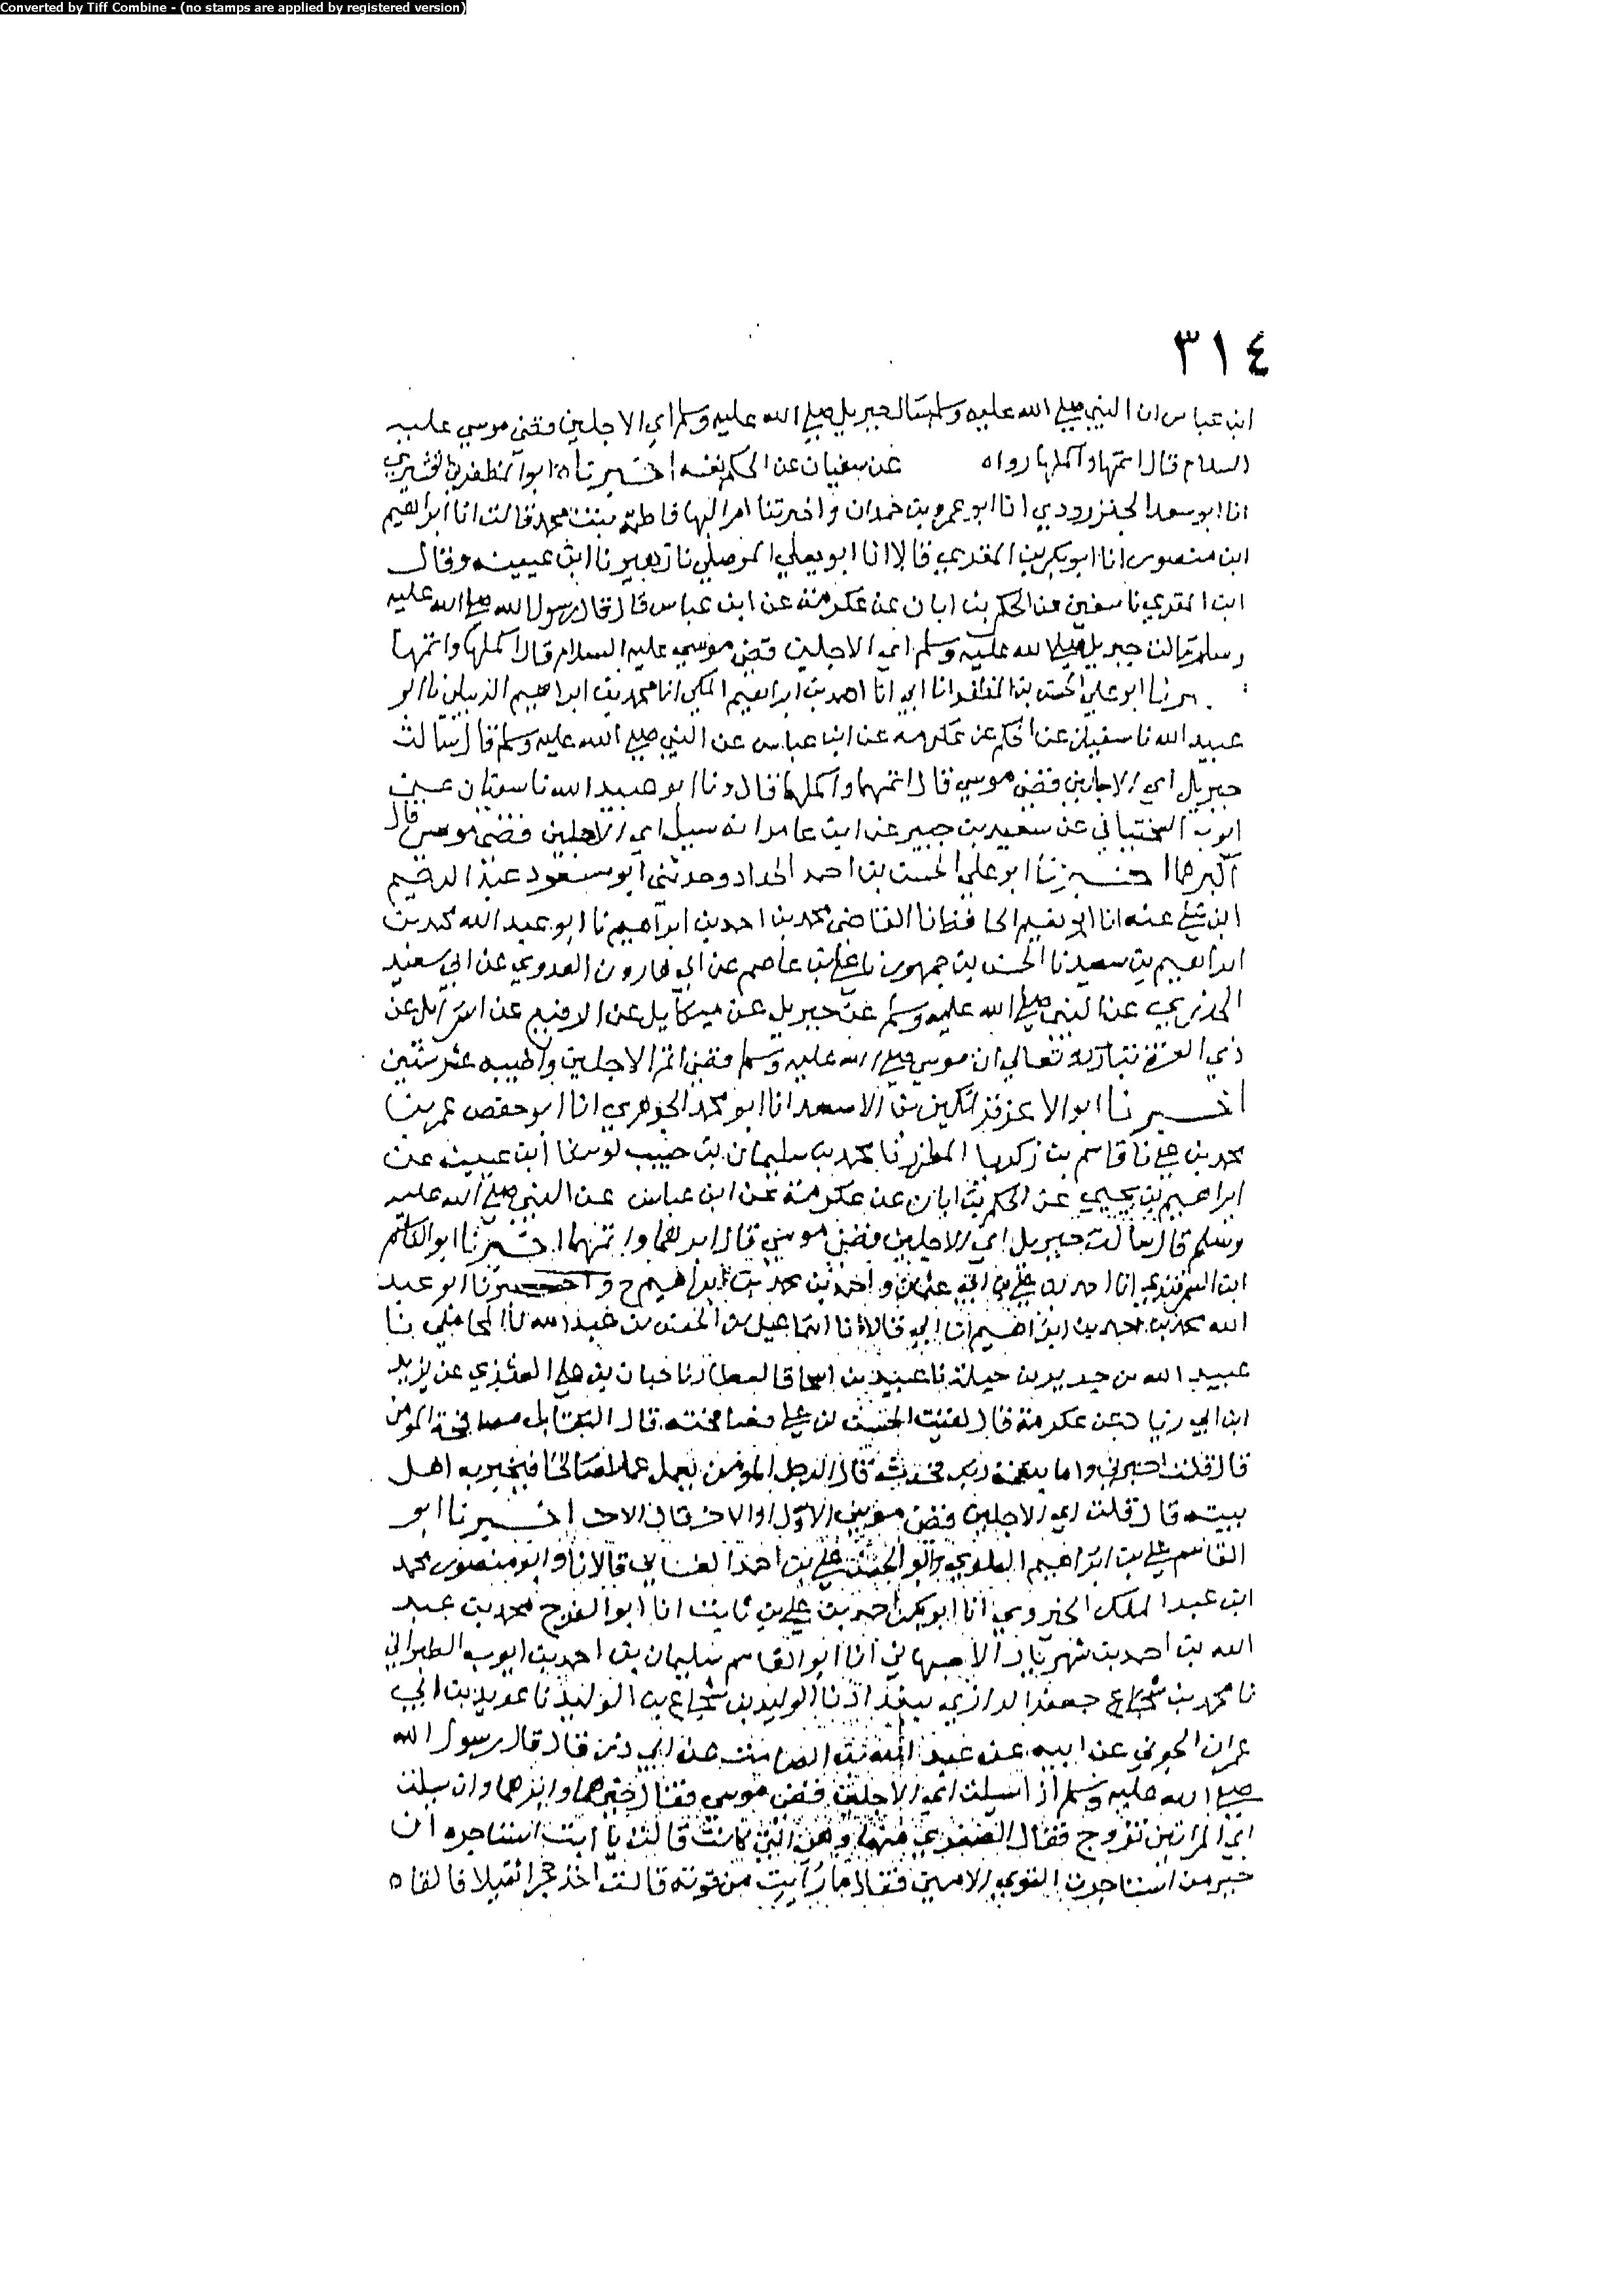 Converted by Tiff Combine - (no stamps are applied by registered version)
٣١٤
ابن عباس ان النبي صلى الله عليه وسلم سال جبريل صلى الله عليه وسلم اي الاجلين قضى موسى عليه
السلام قال اتمها واكملها رواه عن سفيان عن الحكم نفسه اخبرتاه ابو المظفر بن القشيري
انا ابو سعد الجنزرودي انا ابو عمرو بن حمدان واخبرتنا ام البها فاطمة بنت محمد قالت انا ابراهيم
ابن منصور انا ابو بكر بن المقري قالا انا ابو يعلي الموصلي نا زهير نا ابن عيينه وقال
ابن المقري نا سفين عن الحكم بن ابان عن عكرمة عن ابن عباس قال قال رسول الله صلى الله عليه
وسلم سالت جبريل صلى الله عليه وسلم اي الاجلين قضى موسى عليه السلام قال اكملها واتمها
برنا ابو علي الحسن بن المظفر انا ابي انا احمد بن ابراهيم المكي انا محمد بن ابراهيم الديبلي نا ابو
عبيد الله نا سفين عن الحكم عن عكرمه عن ابن عباس عن النبي صلى الله عليه وسلم قال سالت
جبريل اي الاجلين قضى موسى قال اتمهما واكملها قال ونا ابو عبيد الله نا سفيان عن
ايوب السختياني عن سعيد بن جبير عن ابن عامر انه سيل اي الاجلين قضى موسى قال
اكبرهما اخبرنا ابو علي الحسن بن احمد الحداد وحدثني ابو مسعود عبد الرحيم
ابن علي عنه انا ابو نعيم الحافظ نا القاضي محمد بن احمد بن ابراهيم نا ابو عبد الله محمد بن
ابراهيم بن سعيد نا الحسن بن جمهور نا علي بن عاصم عن ابي هارون العدوي عن ابي سعيد
الخدري عن النبي صلى الله عليه وسلم عن جبريل عن ميكايل عن الرفيع عن اسرافيل عن
ذي العزة تبارك وتعالى ان موسى صلى الله عليه وسلم قضى اتم الاجلين واطيبه عشر سنين
اخبرنا ابو الاعز قراتكين بن الاسعد انا ابو محمد الجوهري انا ابو حفص عمر بن
محمد بن علي نا قاسم بن زكريا المطرز نا محمد بن سليمان بن حبيب لوين نا ابن عيينه عن
ابراهيم بن يحيى عن الحكم بن ابان عن عكرمة عن ابن عباس عن النبي صلى الله عليه
وسلم قال سالت جبريل اي الاجلين قضى موسى قال ابرهما واتمهما اخبرنا ابو القاسم
ابن السمرقندي انا احمد بن علي بن ابي عثمان واحمد بن محمد بن ابراهيم ح واخبرنا ابو عبد
الله محمد بن احمد بن ابراهيم انا ابي قالا انا اسماعيل بن الحسن بن عبد الله نا المحاملي نا
عبيد الله بن جرير بن جبلة نا عبيد بن اسحاق العطار نا حبان بن علي العنزي عن يزيد
ابن ابي زياد عن عكرمة قال لقيت الحسن بن علي فصافحته قال التقابل مصافحة المومن
قال قلت اخبرني واما بنعمة ربك فحدث قال الرجل المومن يعمل عملا صالحا فيخبر به اهل
بيته قال قلت اي الاجلين قضى موسى الاول او الاخر قال الاخر اخبرنا ابو
القاسم علي بن ابراهيم العلوي وابو الحسن علي بن احمد الغساني قالا نا وابو منصور محمد
ابن عبد الملك الخيروني انا ابو بكر احمد بن علي بن ثابت انا ابو الفرج محمد بن عبد
الله بن احمد بن شهريار الاصبهاني انا ابو القاسم سليمان بن احمد بن ايوب الطبراني
نا محمد بن جعفر الرازي ببغداد نا الوليد بن شجاع بن الوليد نا عويد بن ابي
عمران الجوني عن ابيه عن عبد الله بن الصامت عن ابي ذر قال قال رسول الله
صلى الله عليه وسلم اذا سيلت اي الاجلين قضى موسى فقال خيرهما وابرهما وان سيلت
اي المراتين تزوج فقال الصغرى منهما وهي التي كانت قالت يا ابت استاجره ان
خير من استاجرت القوي الامين فقال ما رايت من قوته قالت اخذ حجرا ثقيلا فالقاه